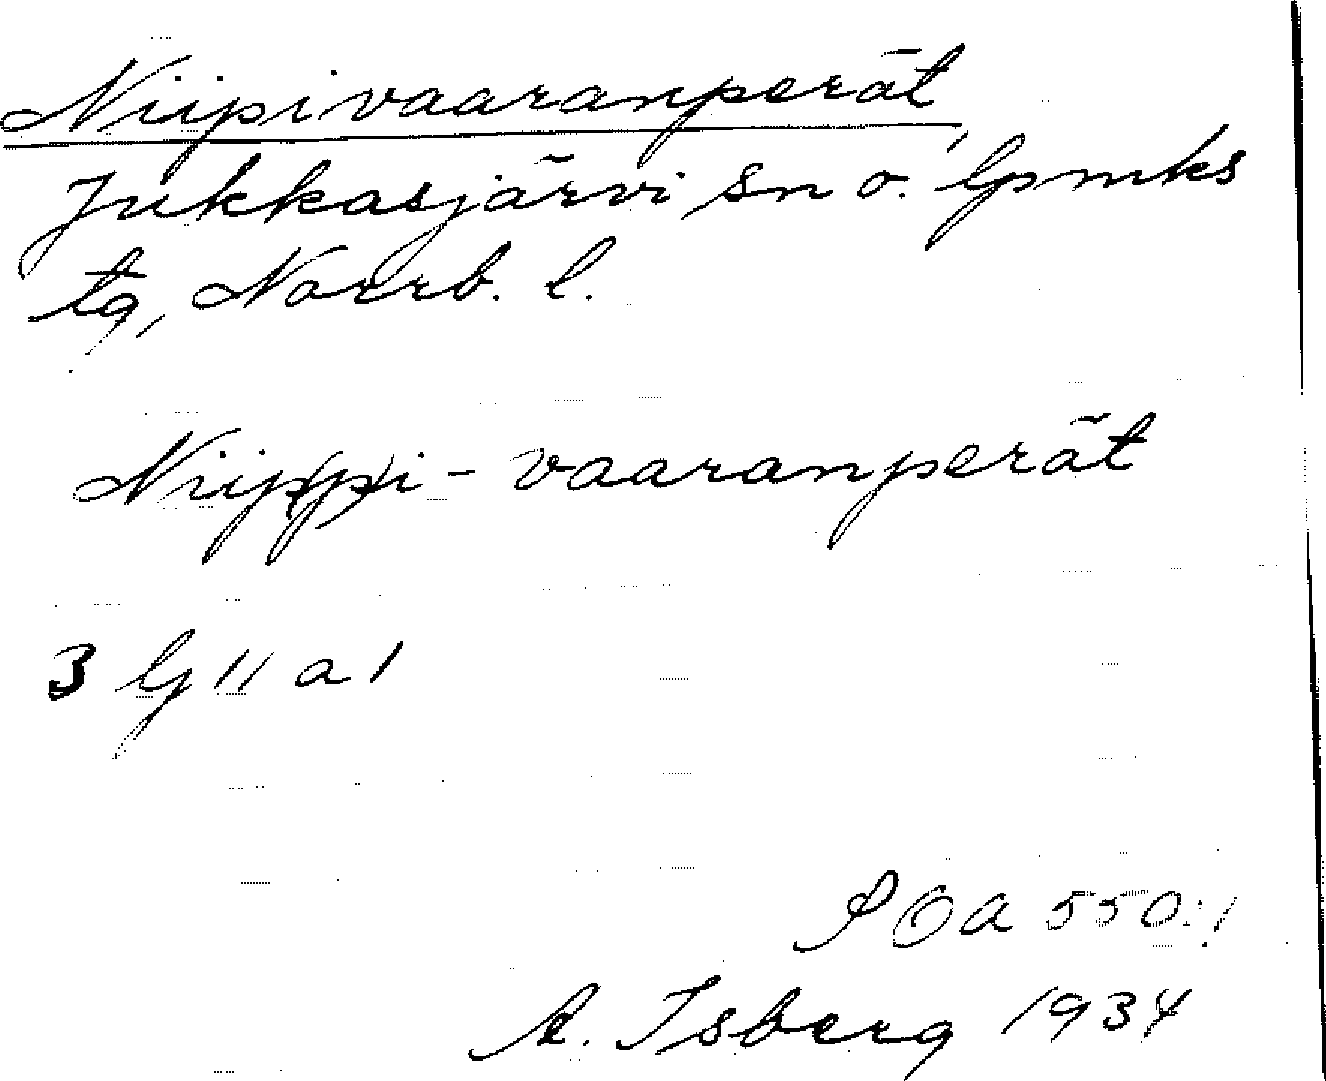 Niipivaaranperät,
Jukkasjärvi sn o. lpmks
tg, Norrb. l.
Niip(p)i-vaaranperät
3 G 11 a 1
SOA 550:1
A. Isberg 1934